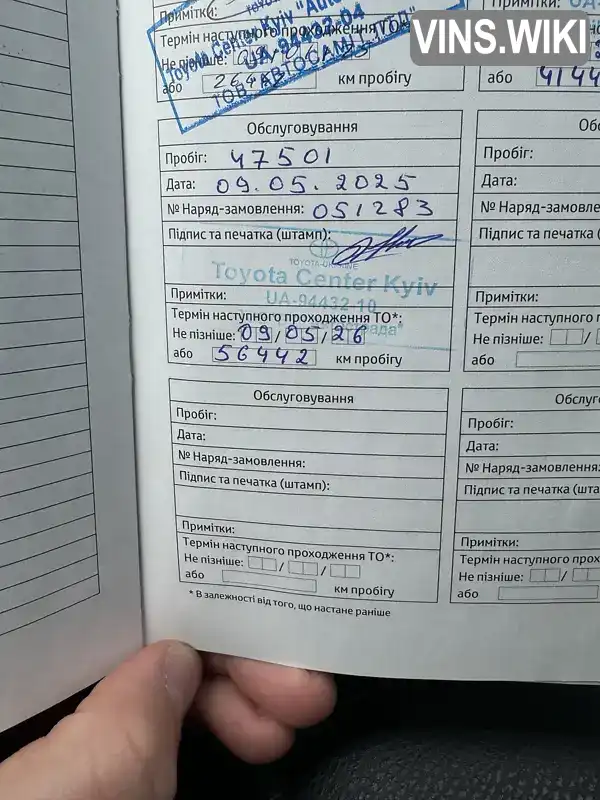 VINS.WIKI
Примітки:
Toyota Center Kyiv "Auto
UA-94432-04
Термін наступного проходження ТО*:
Не пізніше:
або 264 км пробігу
або 4144
Обслуговування
Пробіг: 47501
Дата: 09.05.2025
№ Наряд-замовлення: 051283
Підпис та печатка (штамп):
TOYOTA-UKRAINE
Toyota Center Kyiv
UA-94432-10
Примітки:
Термін наступного проходження ТО*:
Не пізніше: 09/05/26
або 56442 км пробігу
Обслуговування
Пробіг:
Дата:
№ Наряд-замовлення:
Підпис та печатка (штамп):
Примітки:
Термін наступного проходження ТО*:
Не пізніше: / /
або км пробігу
* В залежності від того, що настане раніше
Об
Пробіг:
Дата:
№ Наряд-замовле
Підпис та печатка (
Примітки:
Термін наступного п
Не пізніше: /
або
Обслуг
Пробіг:
Дата:
№ Наряд-замовлення:
Підпис та печатка (шта
Примітки:
Термін наступного прохо
Не пізніше: /
або